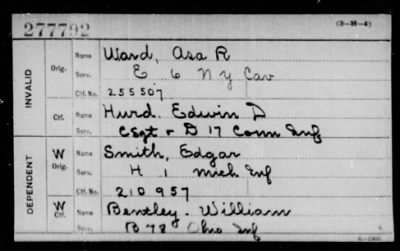 277792
(3-H-4)
INVALID
Orig.
Name Ward, Asa R
Serv. E 6 N Y Cav
Ctf. No. 255507
Ctf.
Name Hurd. Edwin D
Serv. C Sgt + D 17 Conn Inf
DEPENDENT
W Orig.
Name Smith, Edgar
Serv. H 1 Mich Inf
Ctf. No. 210957
W Ctf.
Name Bentley. William
Serv. B 78 Ohio Inf